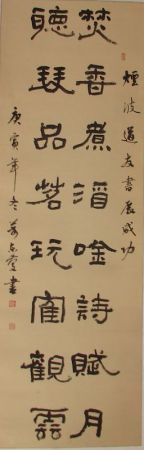 煙波道友書展成功
焚香煮唫詩賦月
聽琴品茗玩寉觀雲
庚寅年冬書